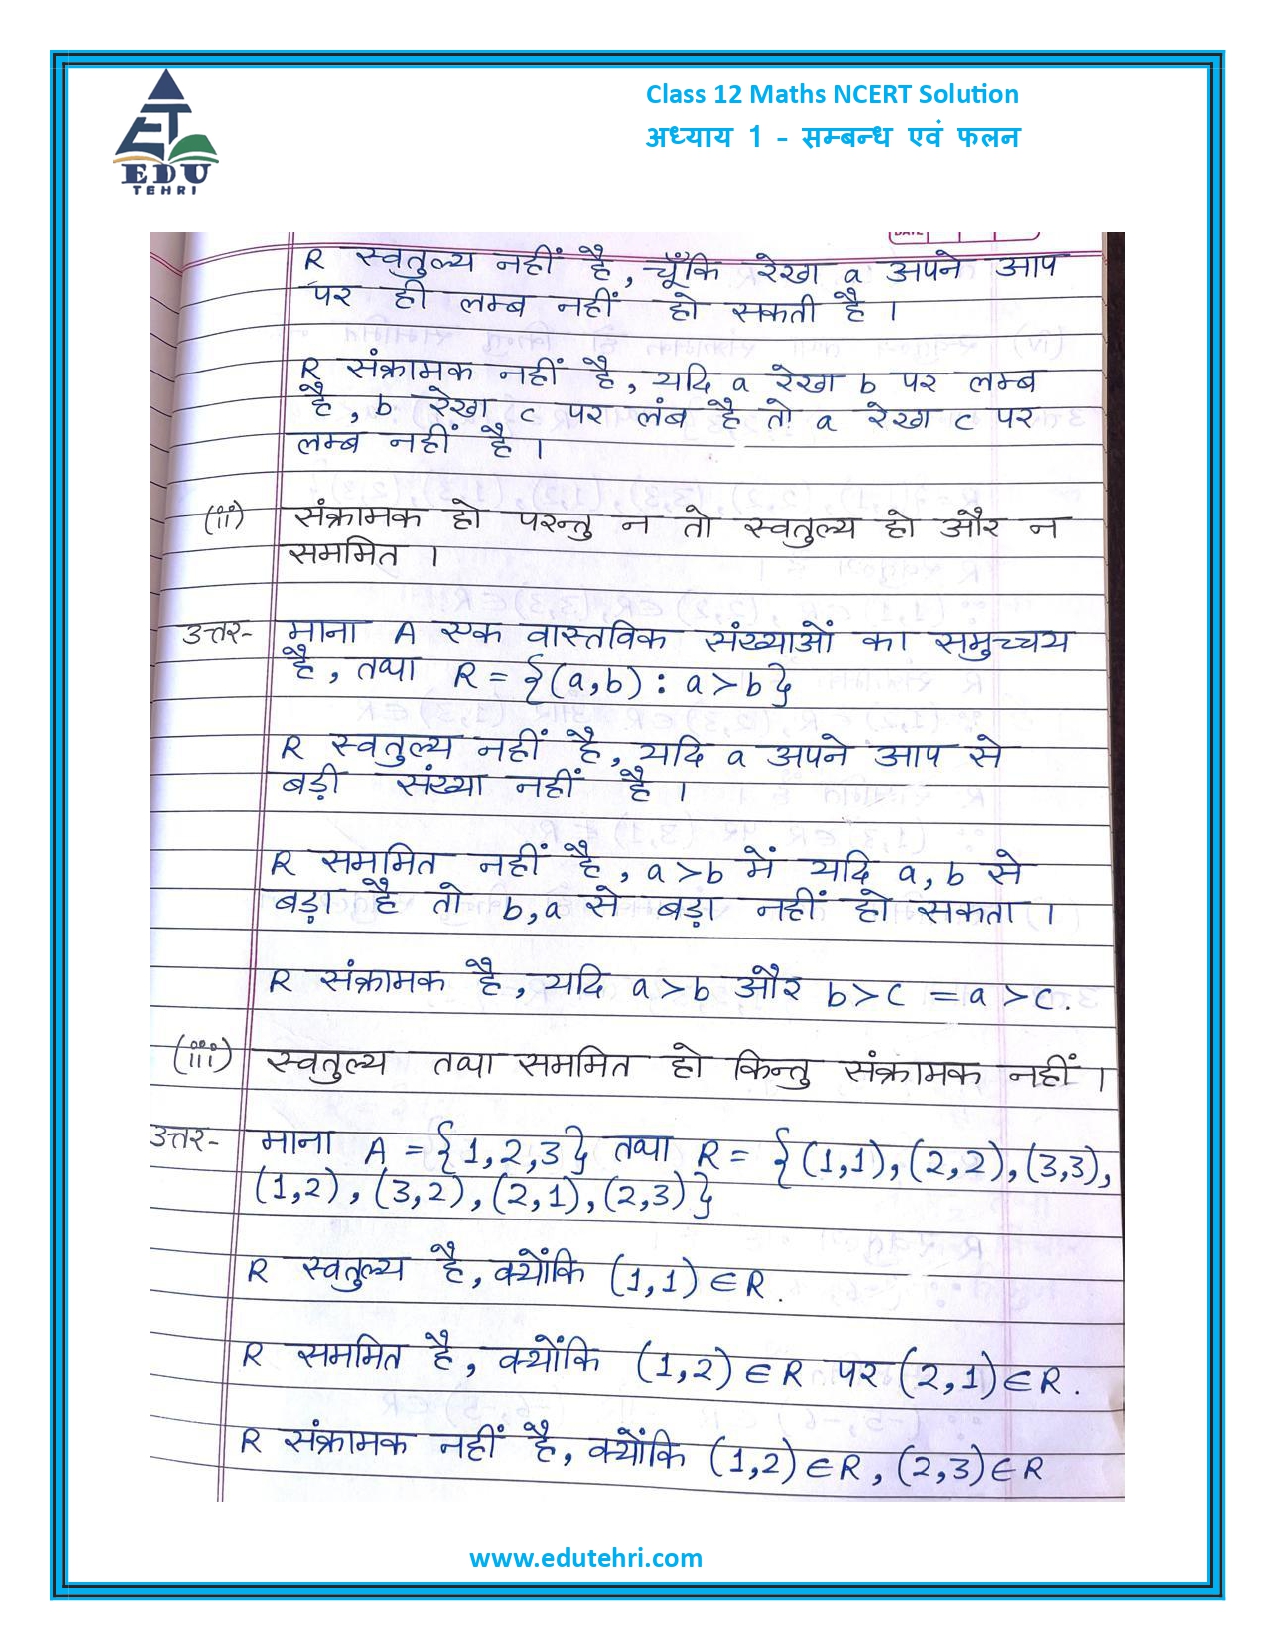 Class 12 Maths NCERT Solution
अध्याय 1 - सम्बन्ध एवं फलन
ET
EDU
TEHRI
DATE
R स्वतुल्य नहीं है, चूँकि रेखा a अपने आप
पर ही लम्ब नहीं हो सकती है ।
R संक्रामक नहीं है, यदि a रेखा b पर लम्ब
है, b रेखा c पर लंब है तो a रेखा c पर
लम्ब नहीं है ।
(ii) संक्रामक हो परन्तु न तो स्वतुल्य हो और न
सममित ।
उत्तर- माना A एक वास्तविक संख्याओं का समुच्चय
है, तथा R = {(a,b) : a>b}
R स्वतुल्य नहीं है, यदि a अपने आप से
बड़ी संख्या नहीं है ।
R सममित नहीं है, a>b में यदि a, b से
बड़ा है तो b, a से बड़ा नहीं हो सकता ।
R संक्रामक है, यदि a>b और b>c = a>c.
(iii) स्वतुल्य तथा सममित हो किन्तु संक्रामक नहीं ।
उत्तर- माना A = {1,2,3} तथा R = {(1,1), (2,2), (3,3),
(1,2), (3,2), (2,1), (2,3)}
R स्वतुल्य है, क्योंकि (1,1) ∈ R.
R सममित है, क्योंकि (1,2) ∈ R पर (2,1) ∈ R.
R संक्रामक नहीं है, क्योंकि (1,2) ∈ R, (2,3) ∈ R
www.edutehri.com